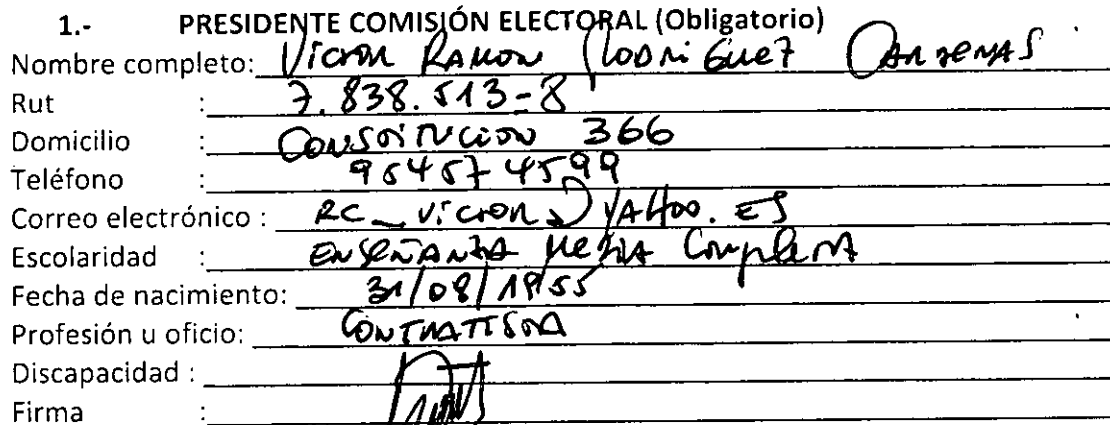 1.- PRESIDENTE COMISIÓN ELECTORAL (Obligatorio)
Nombre completo: Victor Ramon Rodriguez Cardenas
Rut : 7.838.513-8
Domicilio : Constitucion 366
Teléfono : 954574599
Correo electrónico : RC_Victor@YAHOO.ES
Escolaridad : ENSEÑANZA MEDIA Completa
Fecha de nacimiento: 31/08/1955
Profesión u oficio: CONTRATISTA
Discapacidad :
Firma :